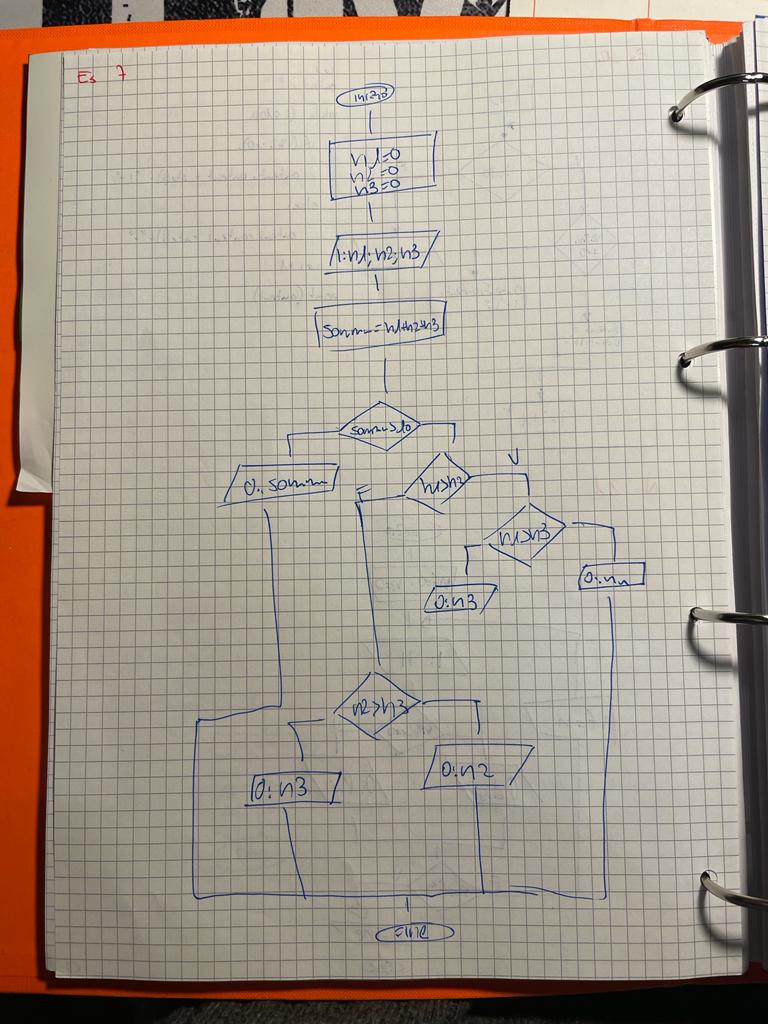 Es 7
inizio
n1=0
n2=0
n3=0
I:n1;n2;n3
somma=n1+n2+n3
somma>10
O:somma
n1>n2
V
F
n1>n3
O:n3
n2>n3
O:n3
O:n2
fine